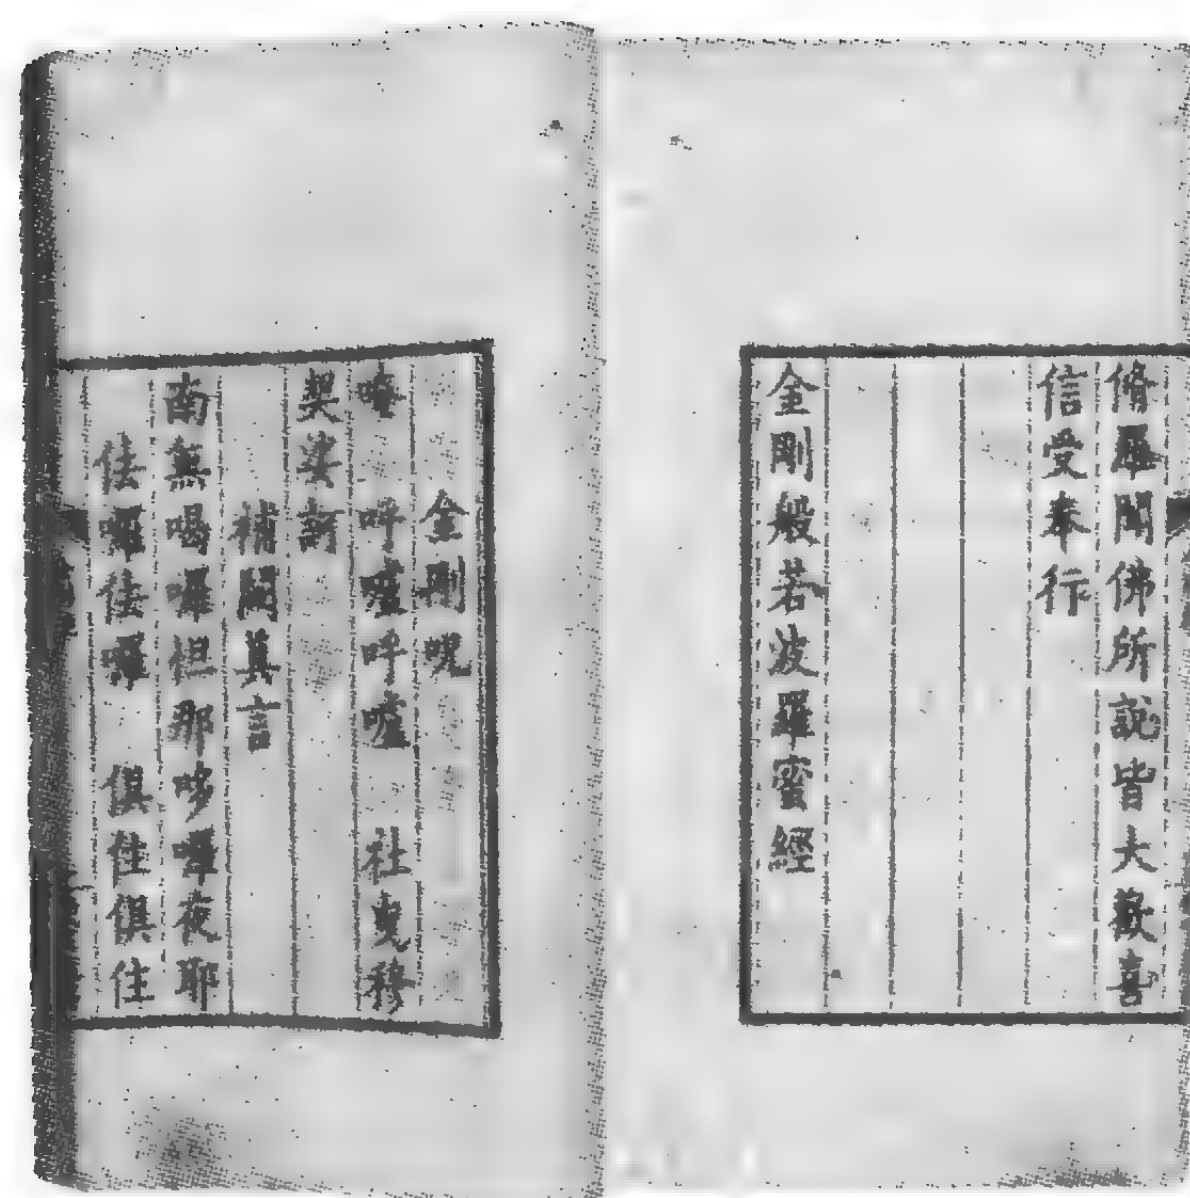 脩羅聞佛所說皆大歡喜
信受奉行
金剛般若波羅蜜經
金剛呪
唵 呼嚧呼嚧 社曳穆
契莎訶
補闕真言
南無喝囉怛那哆囉夜耶
佉囉佉囉 俱住俱住